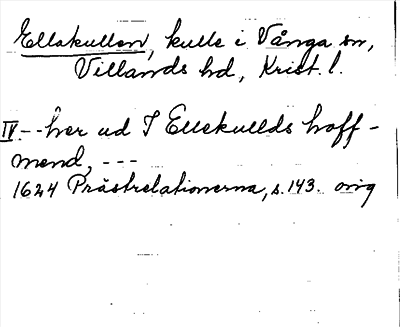 Ellakullen, kulle i Vånga sn,
Villands hd, Krist. l.
IV. -- hver ud I Ellekullds hoff-
mend, ---
1624 Prästrelationerna, s. 143. orig